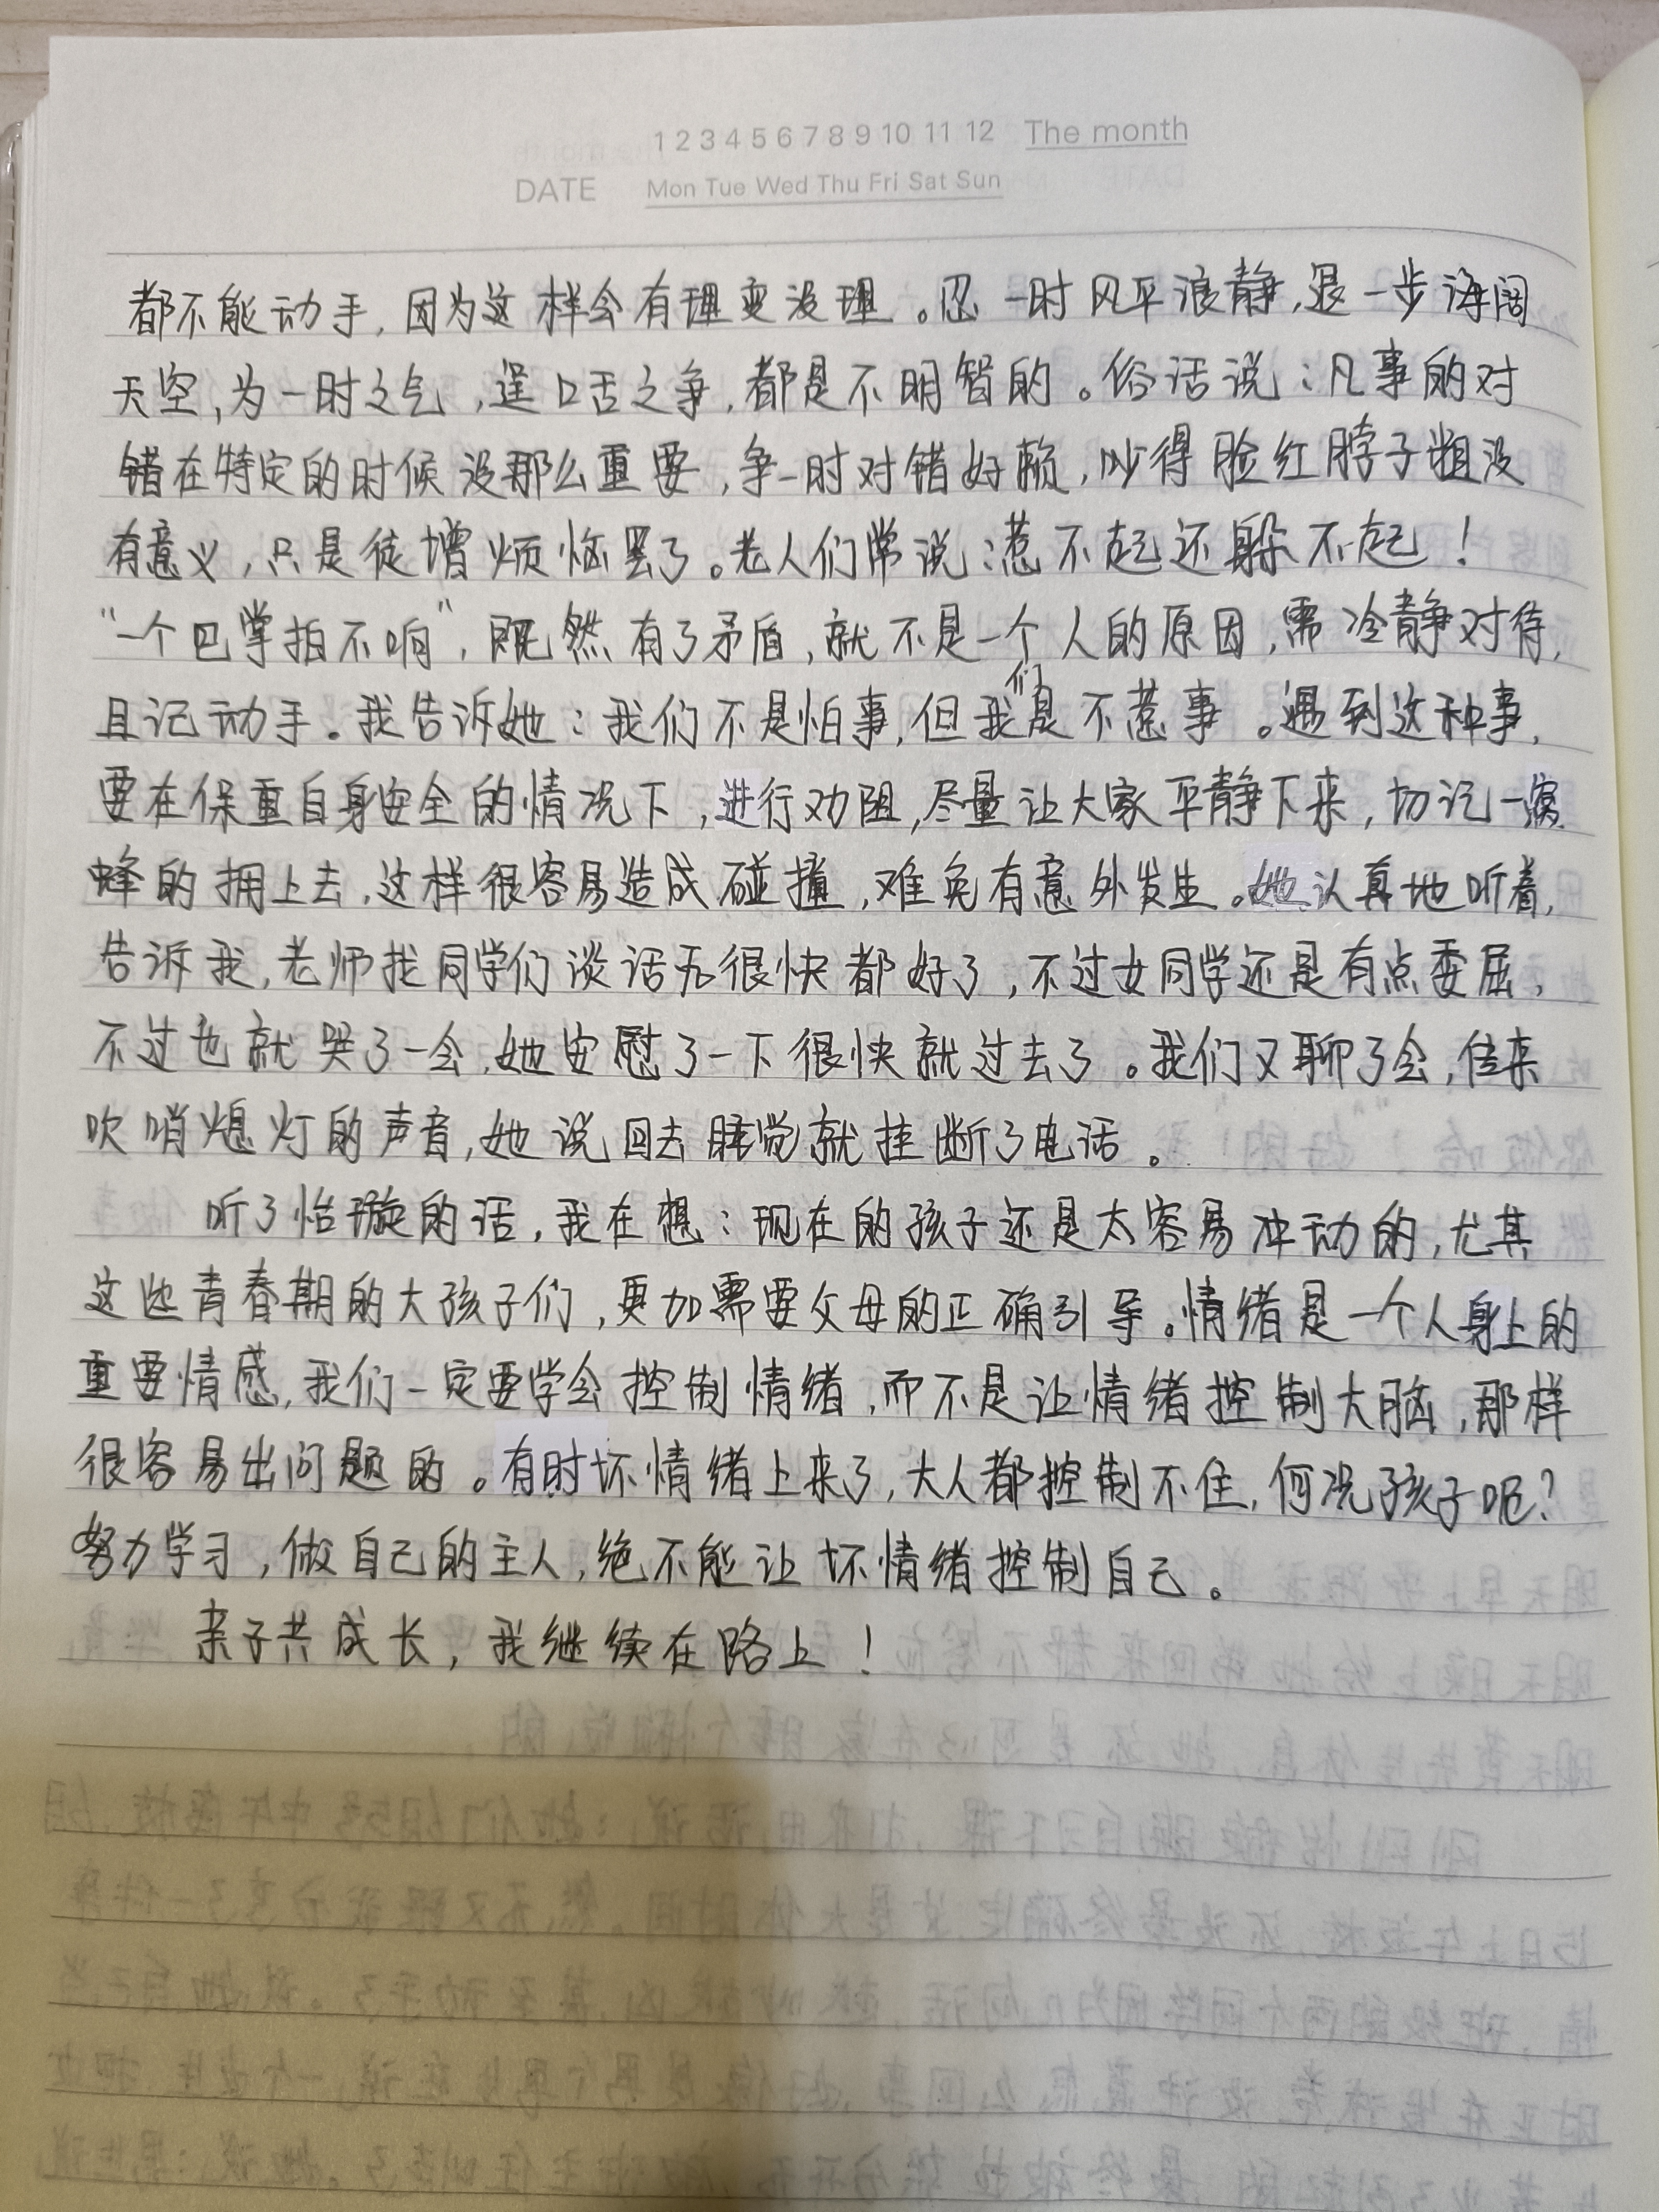 1 2 3 4 5 6 7 8 9 10 11 12 The month
DATE Mon Tue Wed Thu Fri Sat Sun
都不能动手，因为这样会有理变没理。忍一时风平浪静，退一步海阔
天空，为一时之气，逞口舌之争，都是不明智的。俗话说：凡事的对
错在特定的时候没那么重要，争一时对错好赖，吵得脸红脖子粗没
有意义，只是徒增烦恼罢了。老人们常说：惹不起还躲不起！
“一个巴掌拍不响”，既然有了矛盾，就不是一个人的原因，需冷静对待，
且记动手。我告诉她：我们不是怕事，但我们是不惹事。遇到这种事，
要在保重自身安全的情况下，进行劝阻，尽量让大家平静下来，切记一窝
蜂的拥上去，这样很容易造成碰撞，难免有意外发生。她认真地听着，
告诉我，老师找同学们谈话后很快都好了，不过女同学还是有点委屈，
不过也就哭了一会，她安慰了一下很快就过去了。我们又聊了会，传来
吹哨熄灯的声音，她说回去睡觉就挂断了电话。
听了怡璇的话，我在想：现在的孩子还是太容易冲动的，尤其
这些青春期的大孩子们，更加需要父母的正确引导。情绪是一个人身上的
重要情感，我们一定要学会控制情绪，而不是让情绪控制大脑，那样
很容易出问题的。有时坏情绪上来了，大人都控制不住，何况孩子呢？
努力学习，做自己的主人，绝不能让坏情绪控制自己。
亲子共成长，我继续在路上！